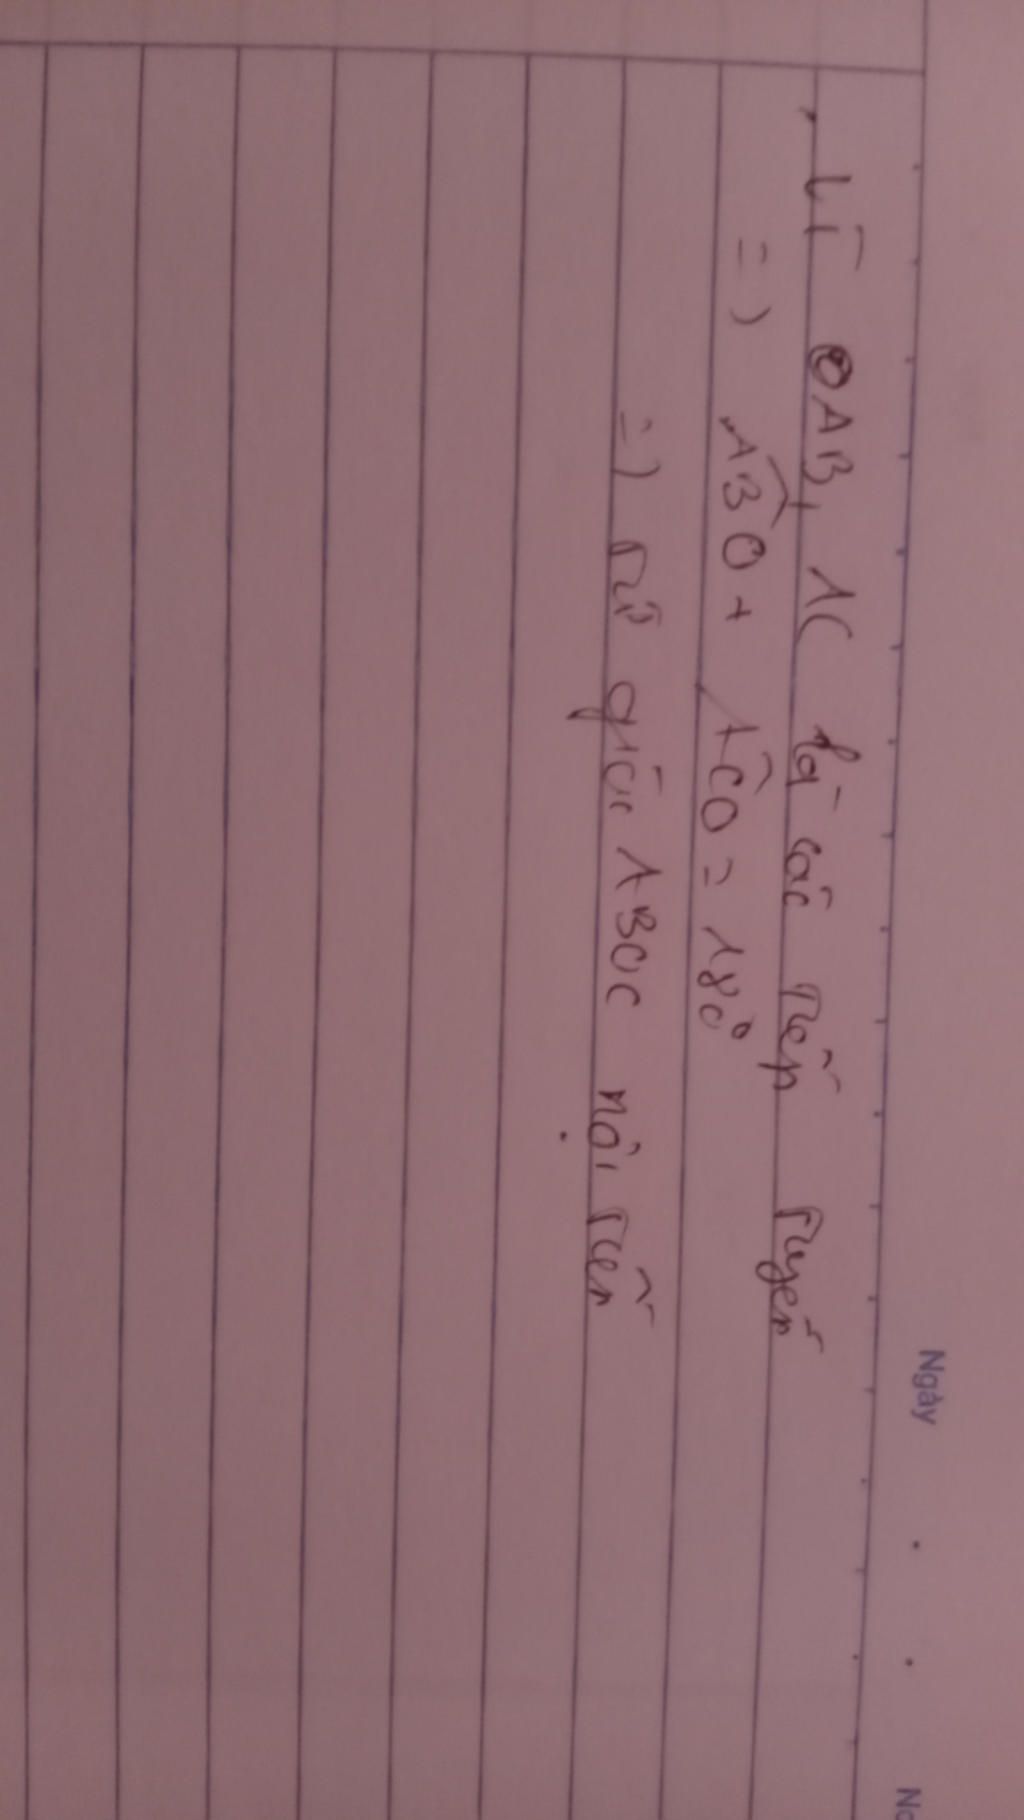 Ngày
Vì AB, AC là các tiếp tuyến
=) ABO + ACO = 180°
=) Tứ giác ABOC nội tiếp